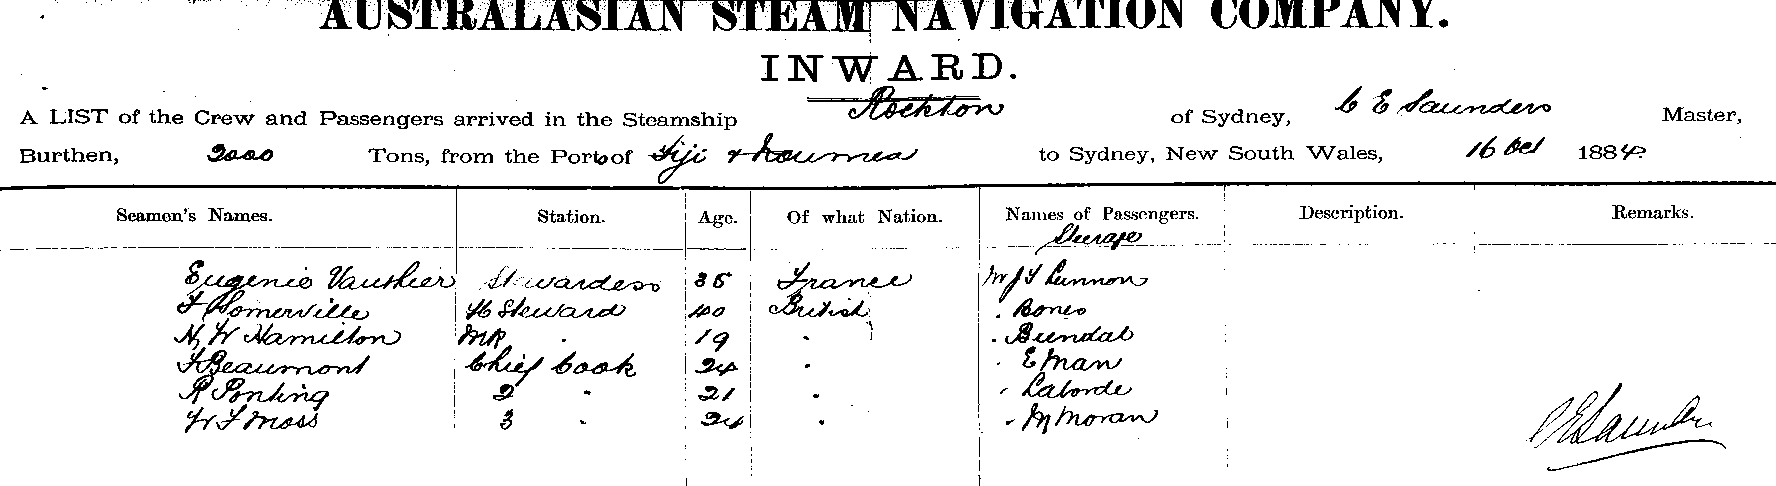 AUSTRALASIAN STEAM NAVIGATION COMPANY.
INWARD.
A LIST of the Crew and Passengers arrived in the Steamship Rockton of Sydney, C E Saunders Master,
Burthen, 2000 Tons, from the Ports of Fiji & Noumea to Sydney, New South Wales, 16 Oct 1884
Seamen's Names. Station. Age. Of what Nation. Names of Passengers. Description. Remarks.
Steerage
Eugenie Vauthier Stewardess 35 France Mr J F Lennon
F Somerville Steward 40 British " Bones
H W Hamilton " 19 " " Bundal
F Beaumont Chief Cook 24 " " E Man
R Ponting 2 " 21 " " Laborde
W F Moss 3 " 24 " " M Moran
C E Saunders